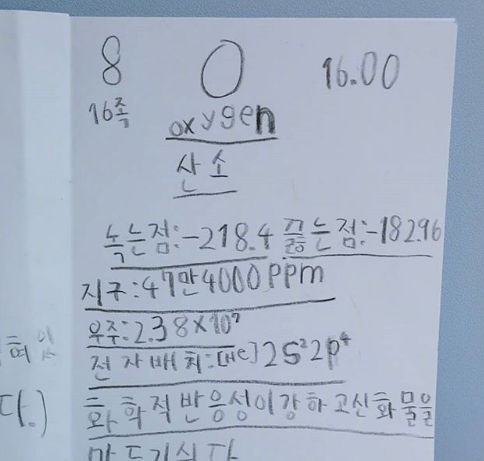 8 O 16.00
16족
oxygen
산소
녹는점:-218.4 끓는점:-182.96
지구:47만4000ppm
우주:2.38×10⁷
전자배치:[He]2S²2p⁴
화학적반응성이강하고산화물을
만들기쉽다
다.)